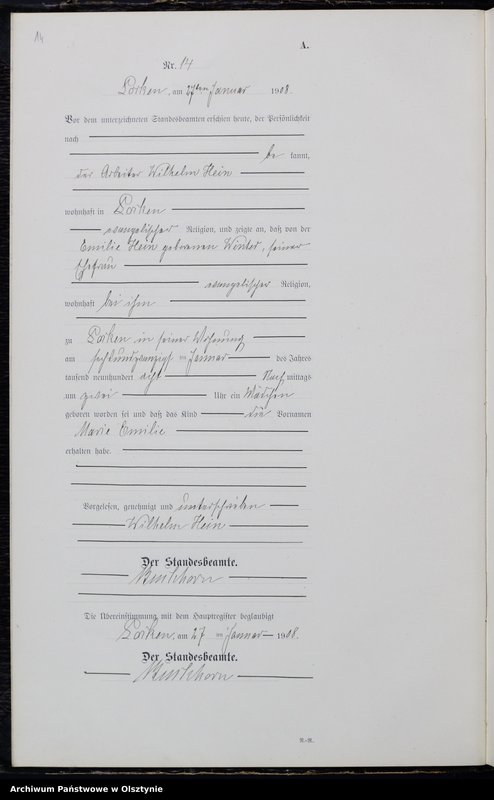 14
A.
Nr. 14
am 27ten Januar 1908.
Vor dem unterzeichneten Standesbeamten erschien heute, der Persönlichkeit
nach
be kannt,
der Arbeiter Wilhelm Hein
wohnhaft in
evangelischer Religion, und zeigte an, daß von der
Emilie Hein geborenen Winter, seiner
Ehefrau
evangelischer Religion,
wohnhaft bei ihm
zu in seiner Wohnung
am sechsundzwanzigst en Januar des Jahres
tausend neunhundert acht Nach mittags
um zwei Uhr ein Mädchen
geboren worden sei und daß das Kind die Vornamen
Marie Emilie
erhalten habe.
Vorgelesen, genehmigt und unterschrieben
Wilhelm Hein
Der Standesbeamte.
Die Übereinstimmung mit dem Hauptregister beglaubigt
am 27 ten Januar 1908.
Der Standesbeamte.
R.-R.
Archiwum Państwowe w Olsztynie